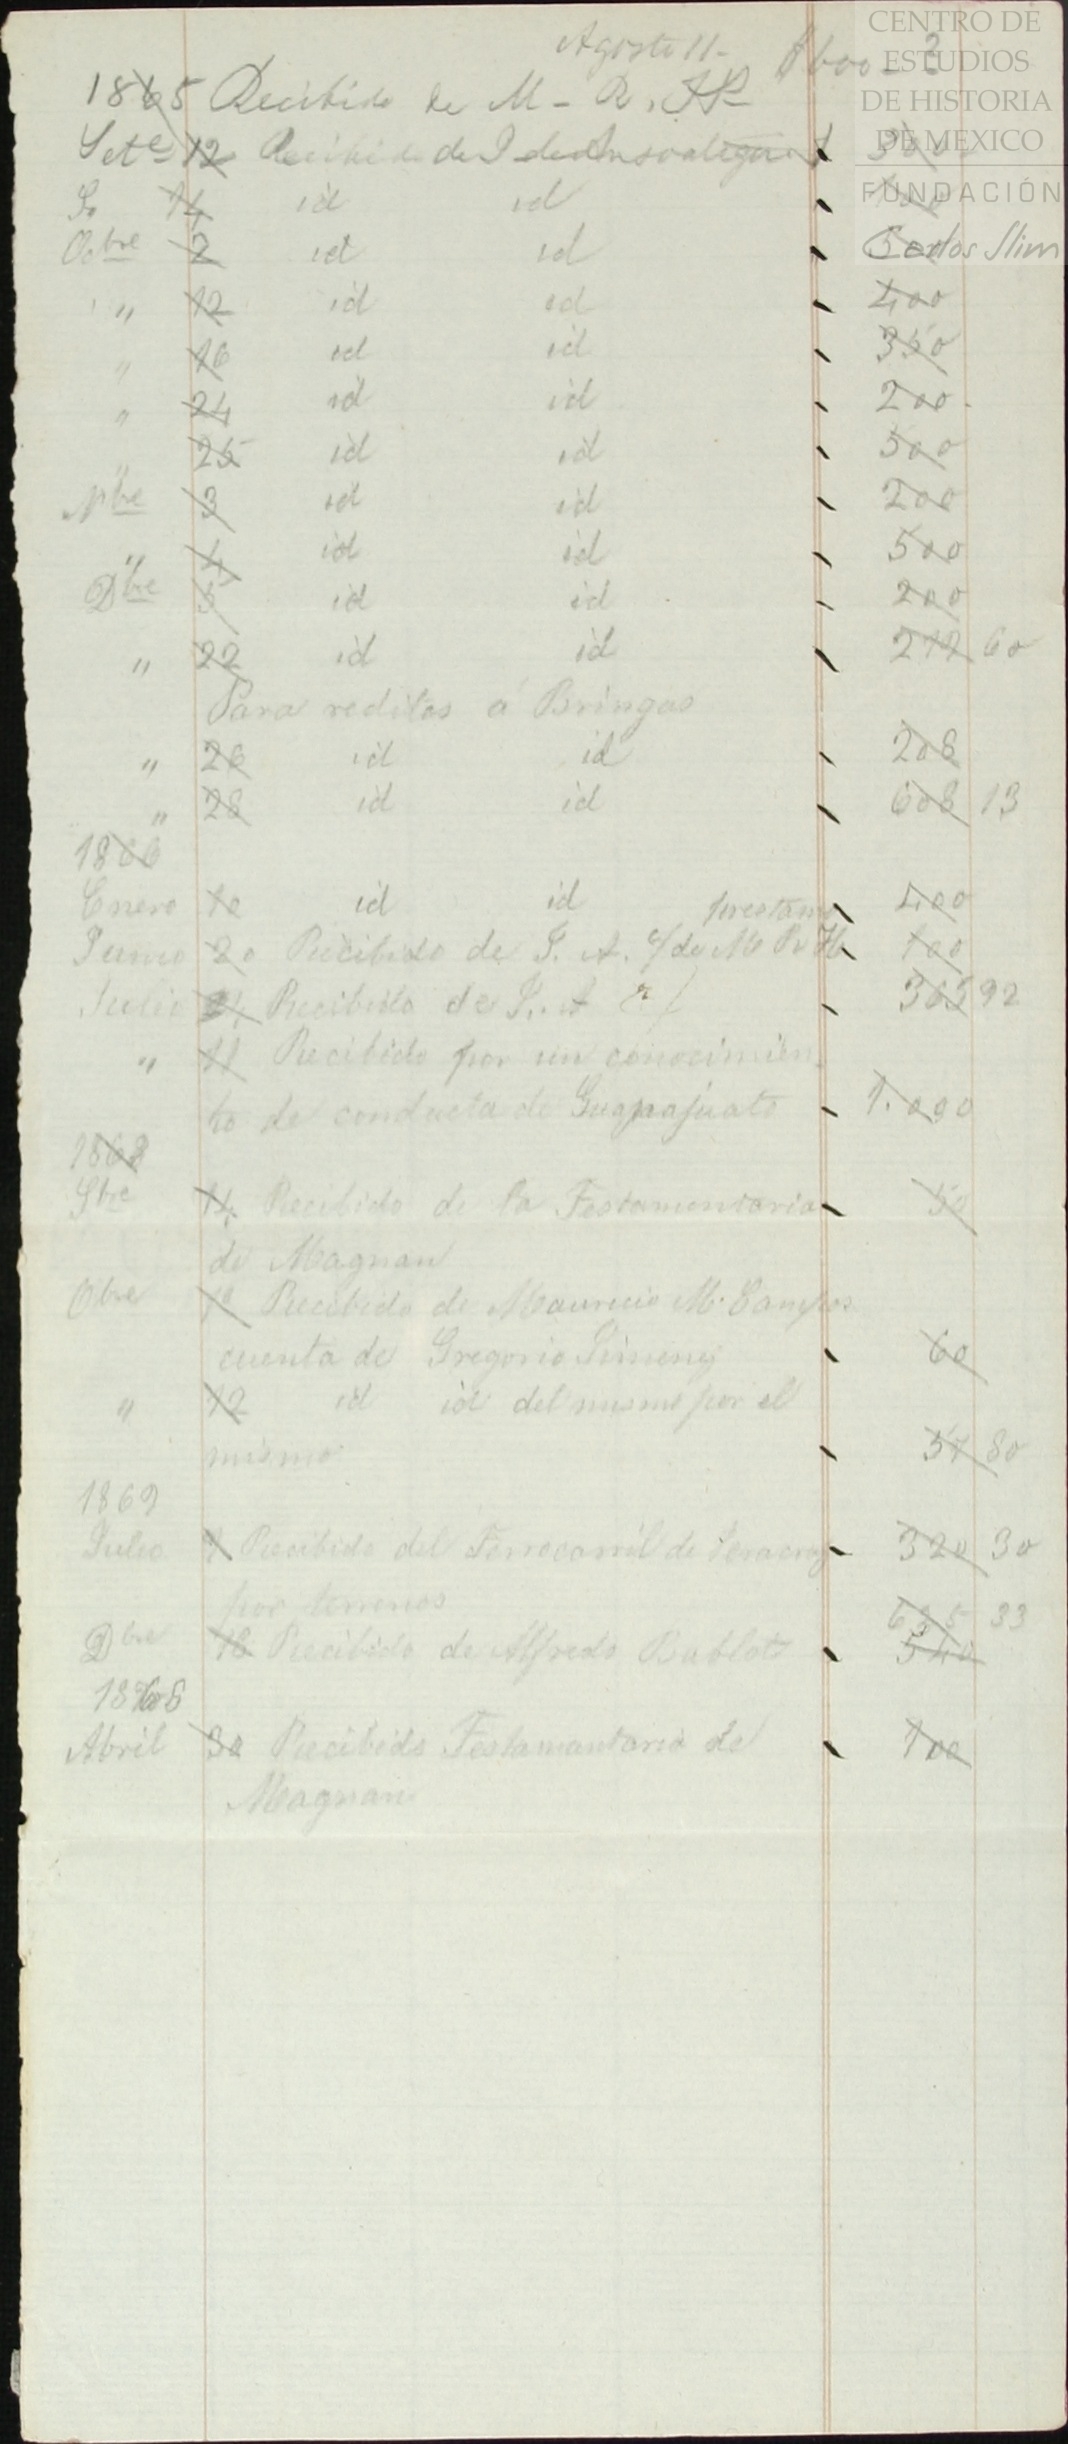 CENTRO DE
ESTUDIOS
DE HISTORIA
DE MEXICO
FUNDACIÓN
Carlos Slim
Agosto 11-
1865 Recibido de M - R.
Sete 12 Recibido de
14 id id
Ocbre 2 id id
" 12 id id 400
" 16 id id 350
" 24 id id 200
" 25 id id 500
Nbre 3 id id 200
" 4 id id 500
Dbre 5 id id 200
" 22 id id 217 60
Para reditos á Bringas
" 26 id id 208
" 28 id id 608 13
1866
Enero 10 id id 400
prestamo
Junio 20 Recibido de J. A. c/ de M R H 100
Julio Recibido de J. A 365 92
" 11 Recibido por un conocimien
to de conducta de Guanajuato 1.000
1868
Sbre 14 Recibido de la Testamentaria 50
de Magnan
Obre 10 Recibido de Mauricio M. Campos
cuenta de Gregorio Jimenez 60
" 12 id id del mismo por el
mismo 57 80
1869
Julio 1 Recibido del Ferrocarril de Veracruz 320 30
por terrenos
635 33
Dbre 18 Recibido de Alfredo Bablot 540
Abril 30 Recibido Testamantaria de 100
Magnan